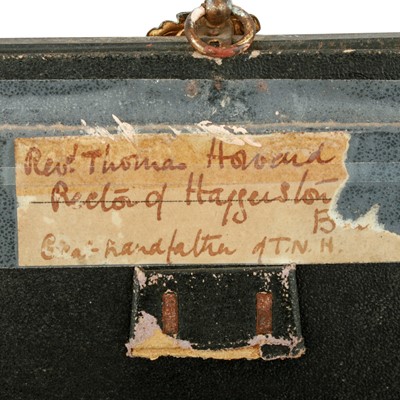 Revd. Thomas Howard
Rector of Haggerston
Great-Grandfather of T.N.H.